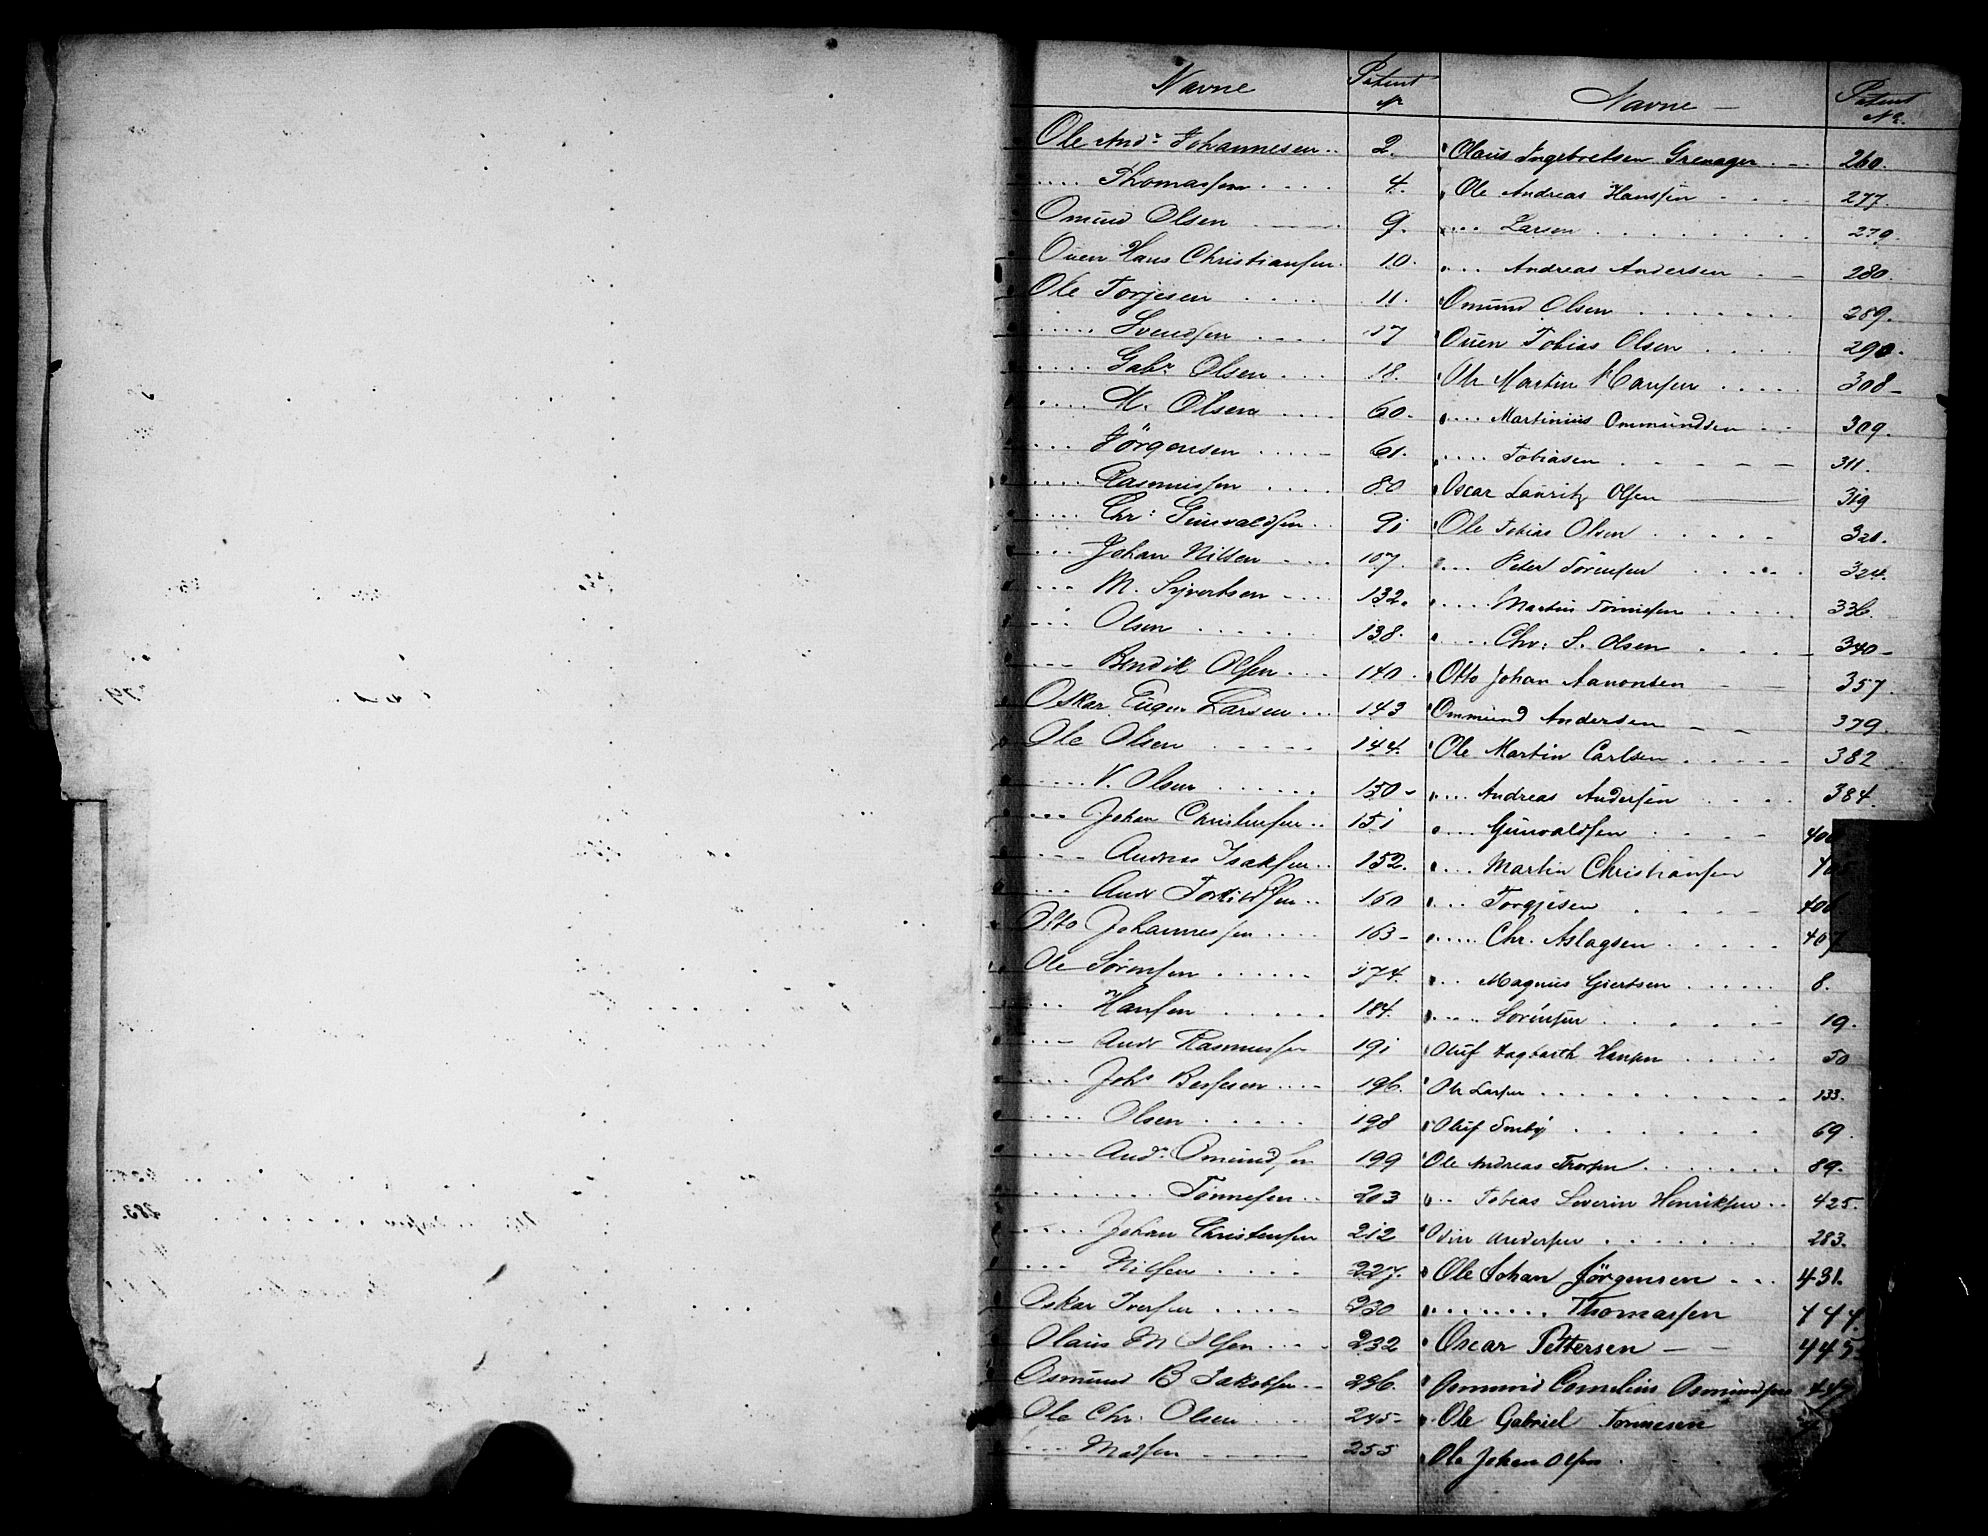 Navne Patent No
Ole Andr Johannesen 2.
Thomassen 4.
Omund Olsen 9.
Ouen Hans Christiansen 10.
Ole Torjesen 11.
Svendsen 17
Gabr Olsen 18.
M. Olsen 60.
Jörgensen 61.
Rasmussen 80
Chr: Gunvaldsen 91
Johan Nilsen 107.
M. Syvertsen 132.
Olsen 138.
Bendik Olsen 140
Oskar Larsen 143
Ole Olsen 144.
V. Olsen 150
Johan Christensen 151
Andreas Isaksen 152.
Andr 160
Otto Johannessen 163
Ole Sörensen 174.
Hansen 184.
Andr Rasmussen 191
Johs 196.
Olsen 198
Andr Omundsen 199
Tönnesen 203
Johan Christensen 212
Nilsen 227.
Oskar Iversen 230
Olaus M Olsen 232
Osmund B Jakobsen 236.
Ole Chr. Olsen 245
Madsen 255
Navne Patent No.
Olaus Ingebretsen Grenager 260.
Ole Andreas Hanssen 277.
Larsen 279.
Andreas Andersen 280.
Omund Olsen 289.
Ouen Tobias Olsen 290.
Ole Martin Hansen 308
Martinius Ommundsen 309.
Tobiasen 311.
Oscar Lauritz Olsen 319
Ole Tobias Olsen 320.
Peter Sörensen 324.
Martin Tönnesen 336.
Chr: S. Olsen 340
Otto Johan Aanonsen 357.
Ommund Andersen 379.
Ole Martin Carlsen 382
Andreas Andersen 384.
Gunvaldsen
Martin Christiansen
Torgjesen 406
Chr. Aslagsen 407
Magnus Gjertsen 8.
Sörensen 19.
Oluf Hagbarth Hansen 50
Ole Larsen 133.
Oluf 69.
Ole Andreas Thorsen 89.
Tobias Severin Henriksen 425.
Odin Andersen 283.
Ole Johan Jörgensen 431.
Thomassen 444.
Oscar Pettersen 445
Osmund Cornelius Osmundsen
Ole Gabriel Tönnesen
Ole Johan Olsen